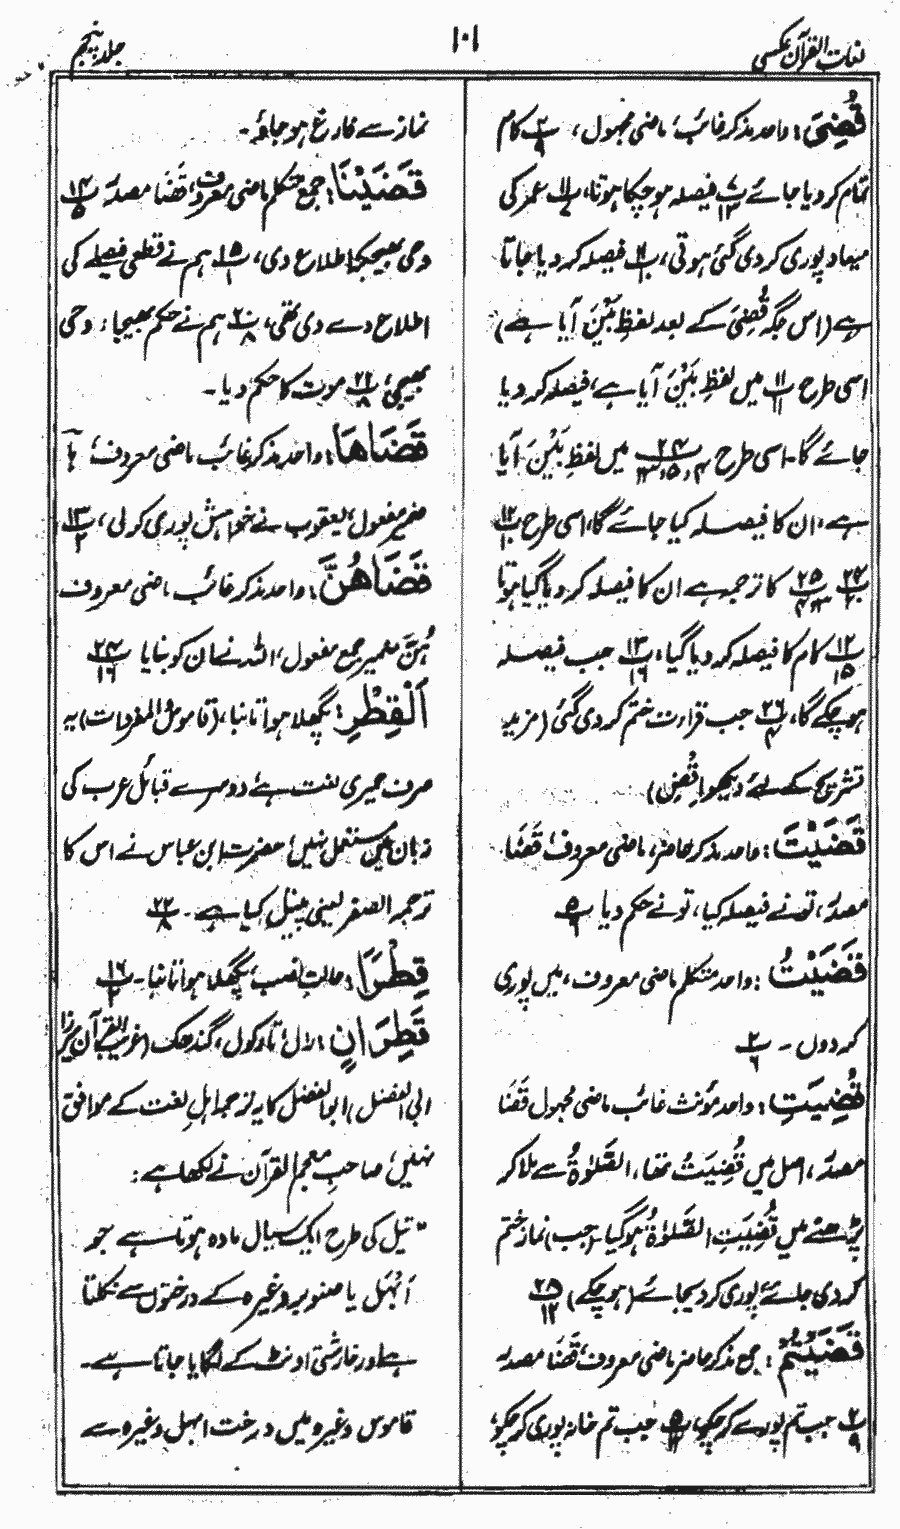 لغات القرآن عکسی
۱۰۱
جلد پنجم
قُضِیَ: واحد مذکر غائب، ماضی مجہول، ۲/۹ کام
تمام کر دیا جائے ۷/۱۲ فیصلہ ہو چکا ہوتا، ۱۱/۷ عمر کی
میعاد پوری کر دی گئی ہوتی، ۱۱/۱ فیصلہ کر دیا جاتا
ہے (اس جگہ قُضِیَ کے بعد لفظِ بَیْنَ آیا ہے)
اسی طرح ۱۱/۱۱ میں لفظِ بَیْنَ آیا ہے، فیصلہ کر دیا
جائے گا۔ اسی طرح ۲۴/۴،۵،۳ میں لفظِ بَیْنَ آیا
ہے، ان کا فیصلہ کیا جائے گا، اسی طرح ۱۲/۱۰
۲۴/۲ ۲۵/۴،۳ کا ترجمہ ہے ان کا فیصلہ کر دیا گیا ہوتا
۱۲/۱۵ کام کا فیصلہ کر دیا گیا، ۱۳/۱۶ جب فیصلہ
ہو چکے گا، ۲۶/۴ جب قراءت ختم کر دی گئی (مزید
تشریح کے لئے دیکھو اقْضِ)
قَضَیْتَ: واحد مذکر حاضر، ماضی معروف، قَضَا
مصدر، تو نے فیصلہ کیا، تو نے حکم دیا ۵/۶
قَضَیْتُ: واحد متکلم ماضی معروف، میں پوری
کر دوں ۔ ۲/۶
قُضِیَتِ: واحد مؤنث غائب ماضی مجہول قَضَا
مصدر، اصل میں قُضِیَتْ تھا، الصَّلٰوۃُ سے ملا کر
پڑھنے میں قُضِیَتِ الصَّلٰوۃُ ہو گیا۔ (جب) نماز ختم
کر دی جائے، پوری کر دیجائے (ہو چکے) ۲۵/۱۲
قَضَیْتُمْ: جمع مذکر حاضر ماضی معروف، قَضَا مصدر
۲/۹ جب تم پورے کر چکو، ۵/۱۲ جب تم خانہ پوری کر چکو،
نماز سے فارغ ہو جاؤ۔
قَضَیْنَا: جمع متکلم ماضی معروف، قَضَا مصدر ۱۴/۵
وحی بھیجکر اطلاع دی، ۱۵/۱ ہم نے قطعی فیصلے کی
اطلاع دے دی تھی، ۲۰/۸ ہم نے حکم بھیجا: وحی
بھیجی، ۲۲/۸ موت کا حکم دیا۔
قَضَاھَا: واحد مذکر غائب ماضی معروف، ہا
ضمیر مفعول، یعقوب نے خواہش پوری کر لی، ۱۳/۲
قَضَاھُنَّ: واحد مذکر غائب ماضی معروف
ھُنَّ ضمیر جمع مفعول، اللہ نے ان کو بنایا ۲۴/۱۶
اَلْقِطْرِ: پگھلا ہوا تانبا، (قاموس المفردات) یہ
صرف حمیری لغت ہے، دوسرے قبائل عرب کی
زبان میں مستعمل نہیں، حضرت ابن عباس نے اس کا
ترجمہ الصفر یعنی پیتل کیا ہے۔ ۲۲/۸
قِطْرًا: حالتِ نصب، پگھلا ہوا تانبا۔ ۱۶/۲
قَطِرَانٍ: رال، تارکول، گندھک (غریب القرآن میرزا
ابی الفضل) ابو الفضل کا یہ ترجمہ اہلِ لغت کے موافق
نہیں، صاحبِ معجم القرآن نے لکھا ہے:
"تیل کی طرح ایک سیال مادہ ہوتا ہے جو
اَبْہَل یا صنوبر وغیرہ کے درختوں سے نکلتا
ہے اور خارشتی اونٹ کے لگایا جاتا ہے۔
قاموس وغیرہ میں درخت ابہل وغیرہ سے